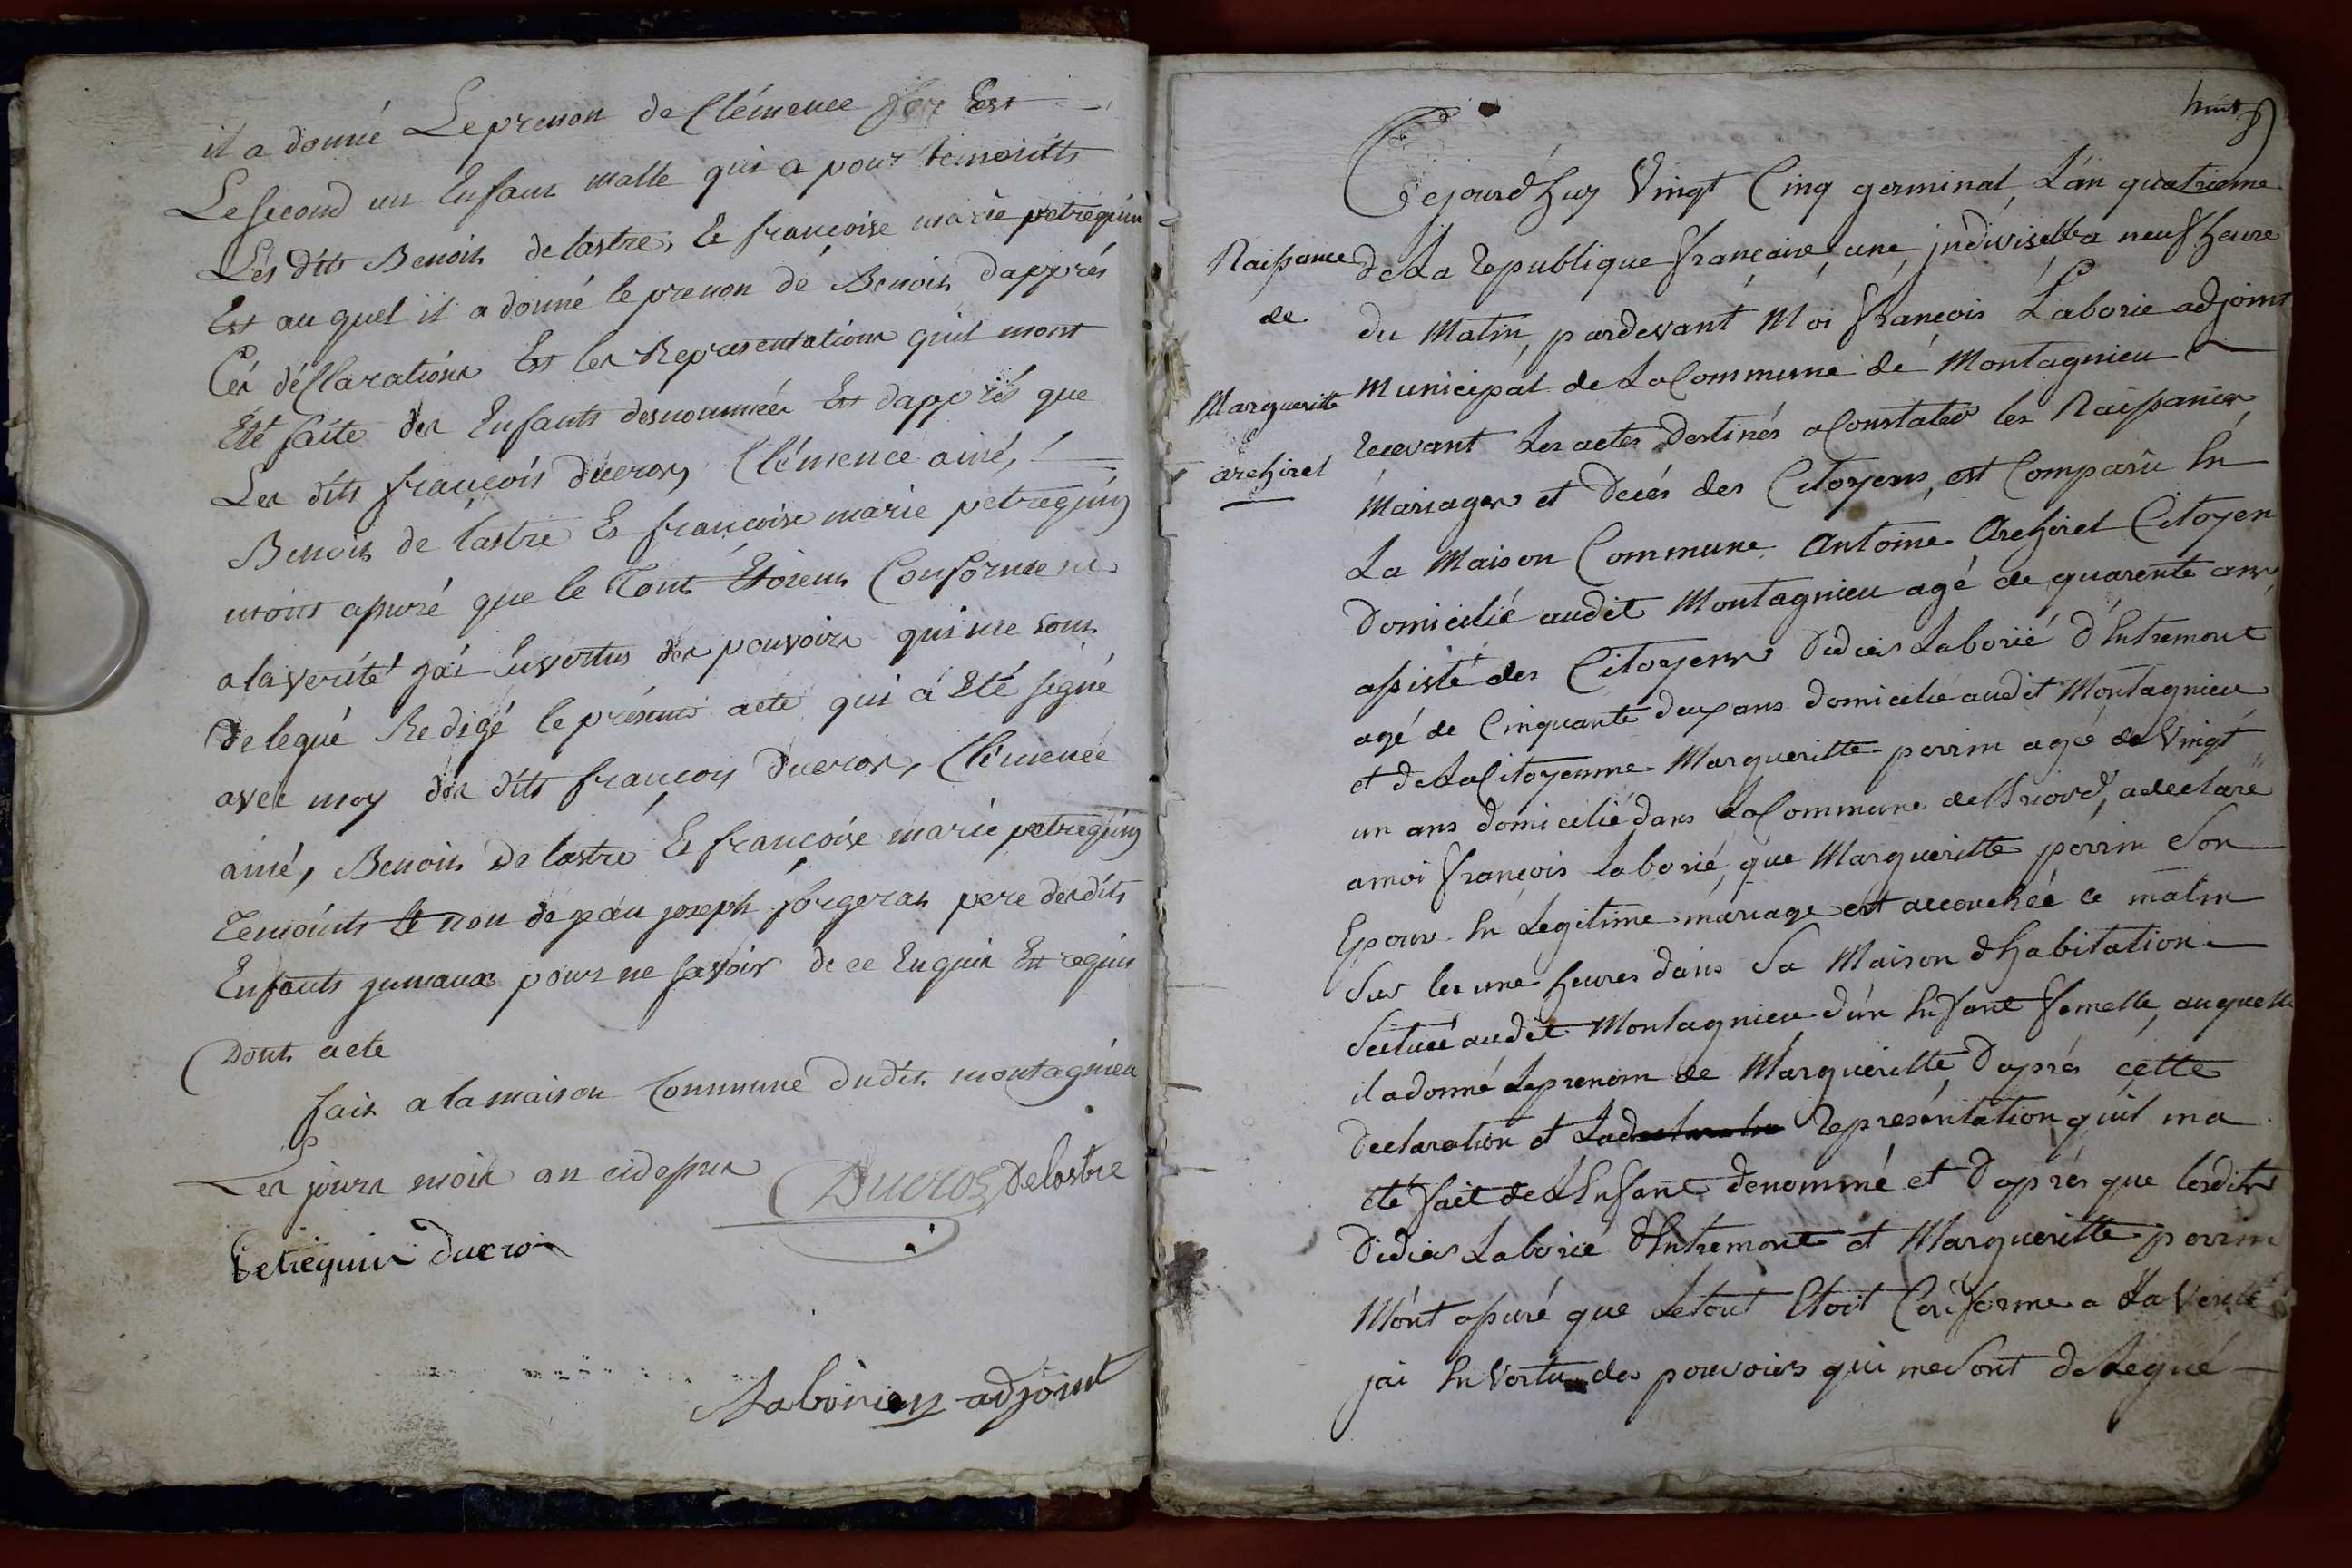 il a donné Le prenon de Clémence Est
Le second un Enfant malle qui a pour temoints
Les dits Benoit delastre, Et françoise marie petrequin
Est au quel il a donné le prenon de Benoit d'apprés
Cés déClarations Est les Representations quil mont
Eté faite des Enfants desnommées Est dapprés que
Les dits françois ducros, Clémence ainé,
Benoit de lastre Et françoise marie petrequin
mont assuré que le Tout Etoient Conforme
a la verité jai Envertus des pouvoirs qui me sont
delegué Redigé le présent acte qui a Eté signé
avec moy des dits françois ducros, Clémence
ainé, Benoit De lastre Et françoise marie petrequin
Temoints non de jean joseph forgeras pere desdits
Enfants jumeaux pour ne savoir de ce Enquis Et requis
Dont acte
fait a la maison Commune dudit montagnieu
Les jours mois an cidessus
Ducros Delastre
Petrequin ducros
Laborier adjoint
huit
Cejourd'huy Vingt Cinq germinal L'an quatrieme
de La Republique françaire, une, jndivisebl a neuf heure
du Matin, pardevant Moi françois Laborie adjoint
Municipal de La Commune de Montagnieu
recevant Les actes Destinés a Constater les Naissances
Mariages et Decés des Citoyens, est Comparu En
La Maison Commune Antoine Archirel Citoyen
Domicilié audit Montagnieu agé de quarente ans
assisté des Citoyens Didier Laborié d'Entremont
agé de Cinquante deux ans domicilié audit Montagnieu
et de La Citoyenne Margueritte perrin agée de Vingt
un ans domicilié dans La Commune de Briord, a declaré
a moi françois Laborié, que Margueritte perrin Son
Epouse En Legitime mariage est accouchée ce matin
Sur les une heures dans Sa Maison d'habitation
Scituée audit Montagnieu d'un Enfant femelle, auquelle
il a donné Le prenom de Margueritte, D'aprés cette
Declaration et La Representation qu'il ma
eté fait de L'Enfant denommé et D'aprés que lesdits
Didier Laborié d'Entremont et Margueritte perrin
M'ont assuré que Le tout Etoit Conforme a La Verité
jai En Vertu des pouvoirs qui me Sont deLegué
Naissance
de
Margueritte
archirel